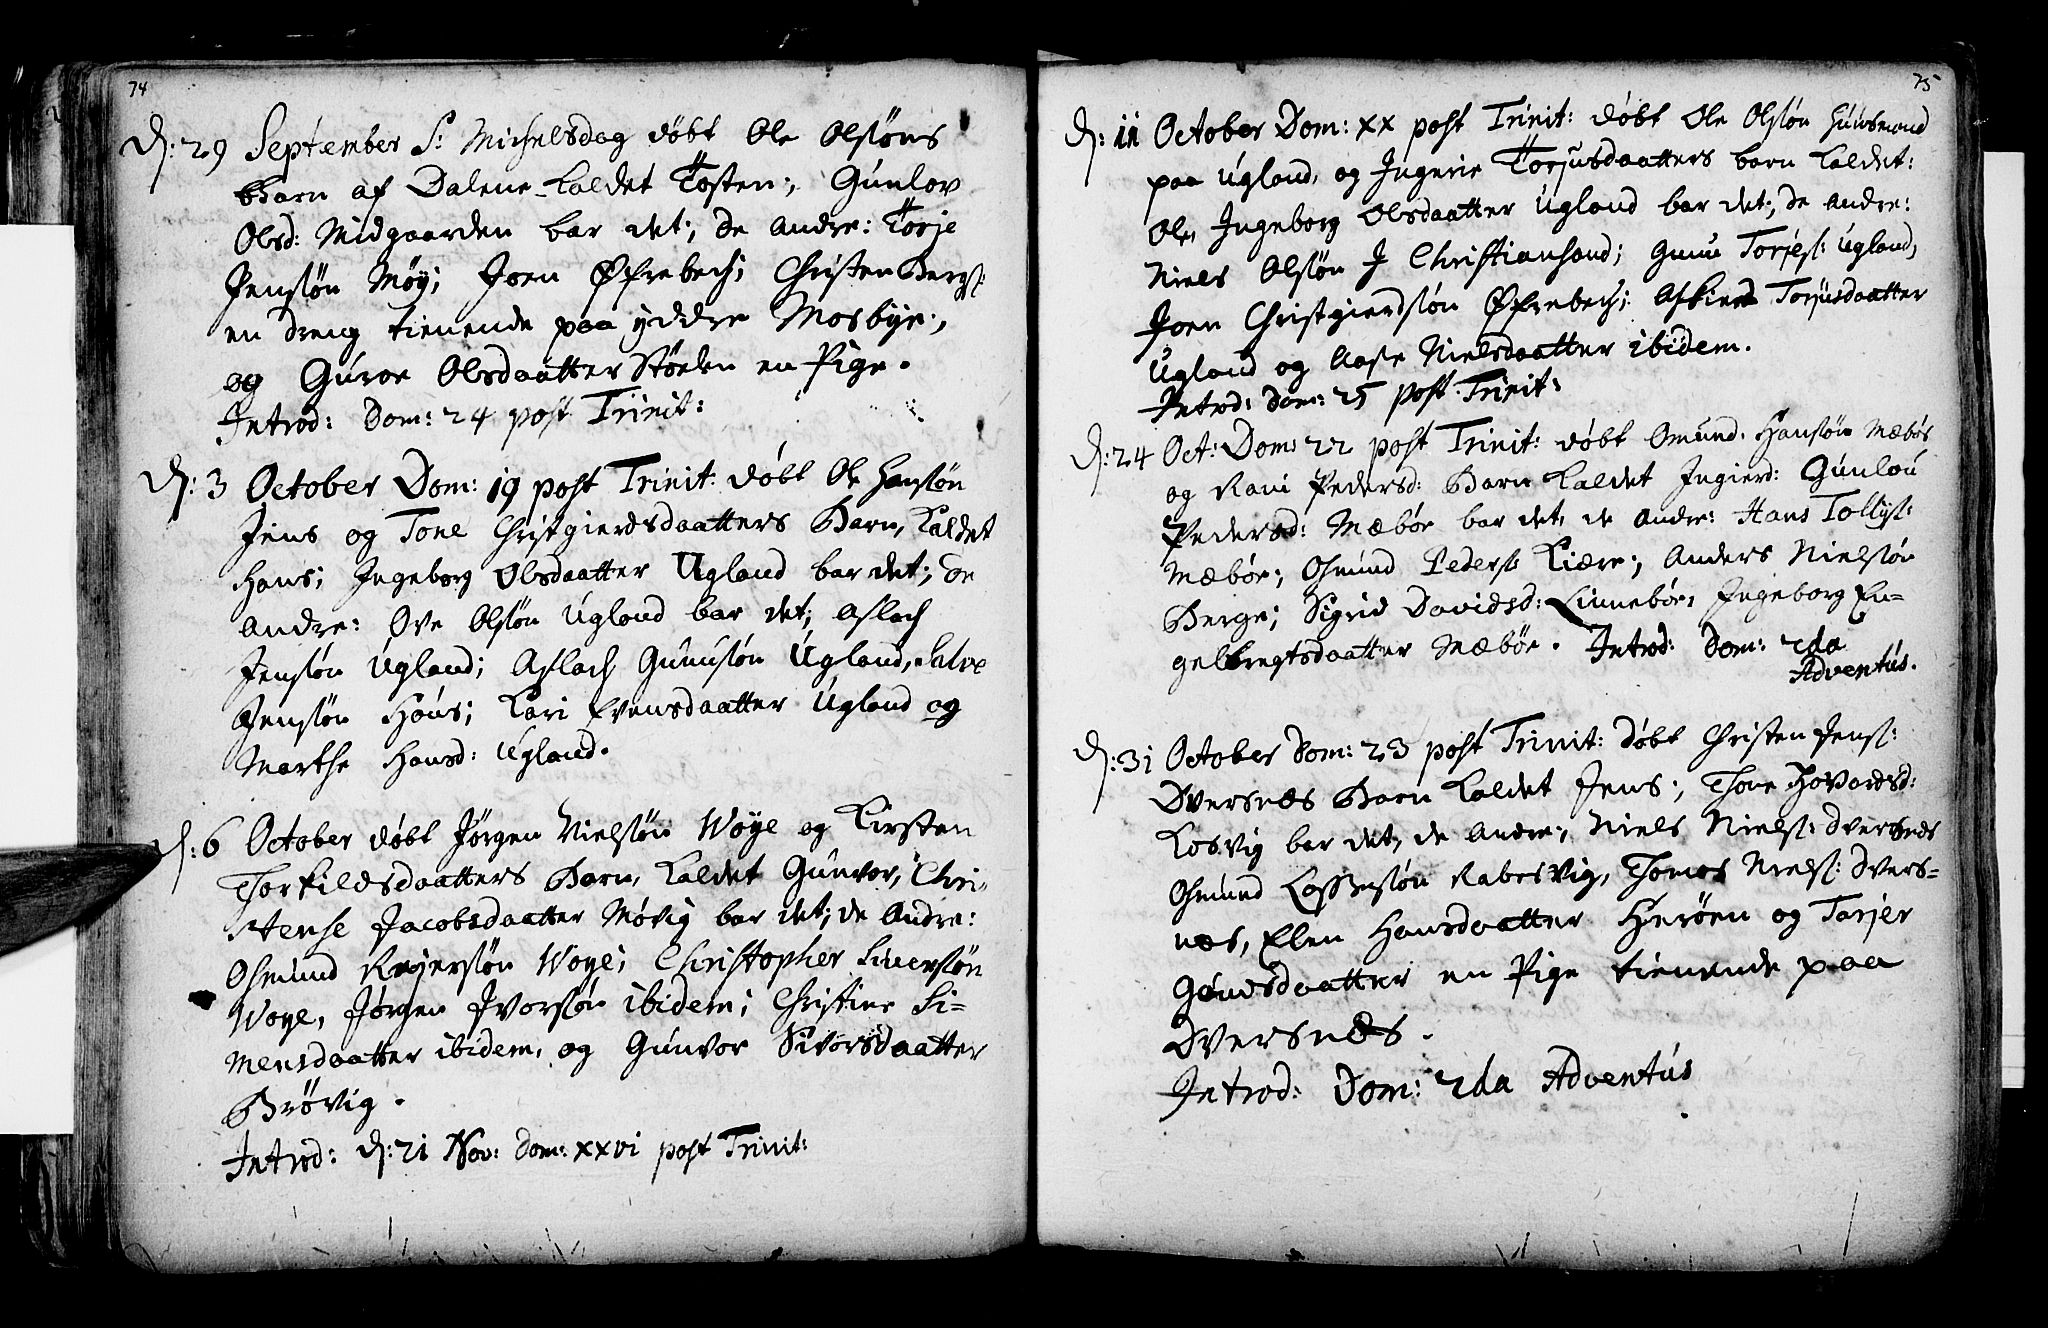 74
D: 29 September S: Michelsdag döbt Ole Olssöns
Barn af Dalene kaldet Tosten; Gunlov
Olsd: Midgaarden bar det; de andre: Torje
Jenssön Möy; Joen Øfrebech; Christen Bergs:
en dreng tienende paa yddre Mosbÿe;
og Guroe Olsdaatter Stöelen en Pige.
Introd: Dom: 24 post Trinit:
D: 3 October Dom: 19 post Trinit: döbt Ole Hanssön
Jens og Tone Christgierdsdaatters Barn, kaldet
Hans; Ingeborg Olsdaatter Ugland bar det; de
andre: Ove Olssön Ugland bar det; Aslach
Jenssön Ugland; Aslach Gunussön Ugland, Salve
Jenssön Höus; Kari Evensdaatter Ugland og
Marthe Hansd: Ugland.
D: 6 October döbt Jörgen Nielssön Woÿe og Kirsten
Thorkildsdaatters Barn, kaldet Gunvor, Chri-
stense Jacobsdaatter Mövig bar det; de andre:
Osmund Reyerssön Woye; Christopher Siverssön
Woye, Jörgen Ivorssön ibidem; Christine Si-
mensdaatter ibidem, og Gunvor Sivorsdaatter
Brövig.
Introd: d: 21 Nov: Dom: XXVI post Trinit:
75
D: 11 October Dom: XX post Trinit: döbt Ole Olssön Huusmand
paa Ugland, og Ingerie Torjusdaatters barn kaldet:
Ole, Ingeborg Olsdaatter Ugland bar det; de andre:
Niels Olssön I Christiansand; Gunu Torjes: Ugland,
Joen Christgierdssön Øfrebech; Askierd Torjusdaatter
Ugland og Aase Nielsdaatter ibidem.
Introd: Dom: 25 post Trinit:
D: 24 Oct: Dom: 22 post Trinit: döbt Omund Hanssön Mæböe
og Rani Pedersd: Barn kaldet Ingierd: Gunlou
Pedersd: Mæböe bar det, de andre: Hans Tollys:
Mæböe; Osmund Peders: Kiære; Anders Nielssön
Berge; Sigrid Davidsd: Linneböe, Ingeborg En-
gelbregtsdaatter Mæböe. Introd: Dom: 2da
Adventús.
D: 31 October Dom: 23 post Trinit: döbt Christen Jens:
Dversnes Barn kaldet Jens; Thone Hovardsd:
Kosvig bar det, de andre; Niels Niels: Dversnes
Osmund Lassessön Rabersvig, Thomas Niels: Dvers-
nes, Elen Hansdaatter Heröen og Torjer
Gundsdaatter en Pige tienende paa
Dversnes.
Introd: Dom: 2da Adventús